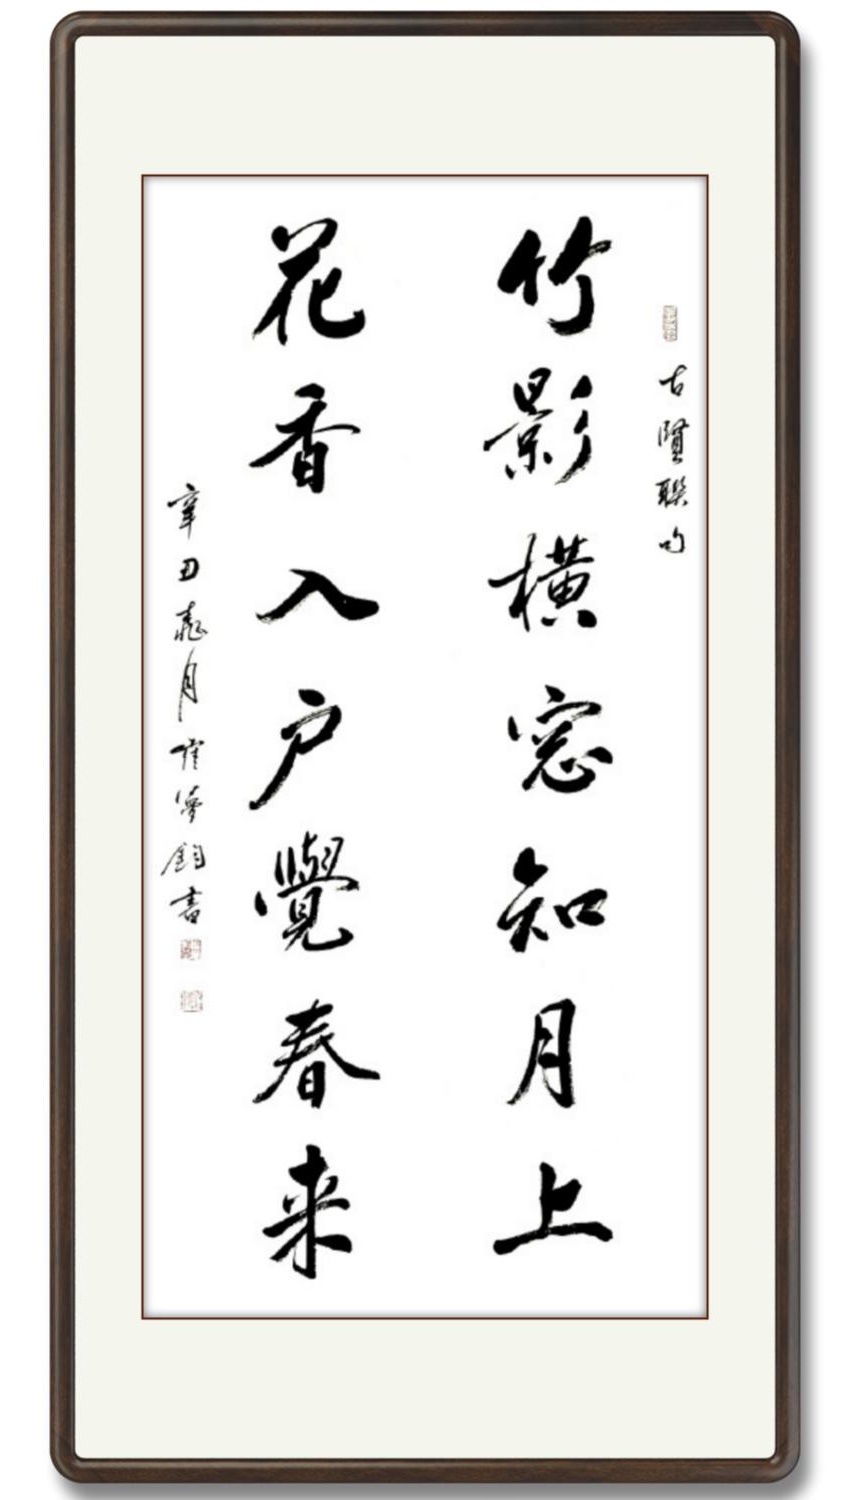 古賢聯句
竹影横窓知月上
花香入户覺春来
辛丑月崔夢鈞書